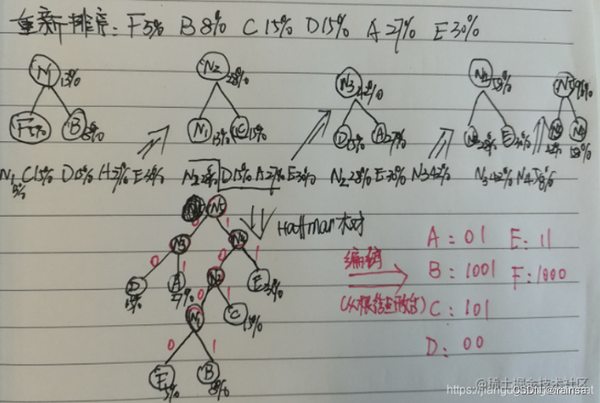 重新排序: F5% B8% C15% D15% A27% E30%
N1 13%
F5% B8%
N2 28%
N1 13% C15%
N3 42%
D15% A27%
N4 58%
N2 28% E30%
N5
N1 13% C15% D15% A27% E30%
N2 28% D15% A27% E30%
N2 28% E30% N3 42%
N3 42% N4 58%
Haffman树
N5
0 1
N3 N4
0 1 0 1
D 15% A 27% N2 E 30%
0 1
N1 C 15%
0 1
F 5% B 8%
编码
(从根结点开始)
A: 01 E: 11
B: 1001 F: 1000
C: 101
D: 00
@稀土掘金技术社区